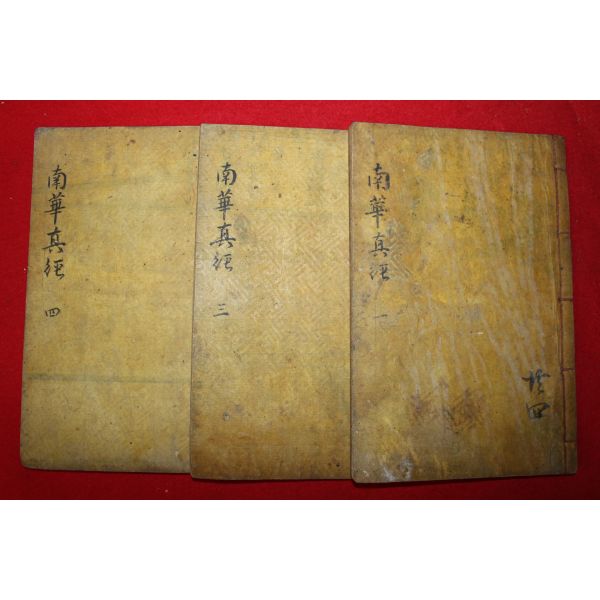 南華真經 一
共四
南華真經 三
南華真經 四